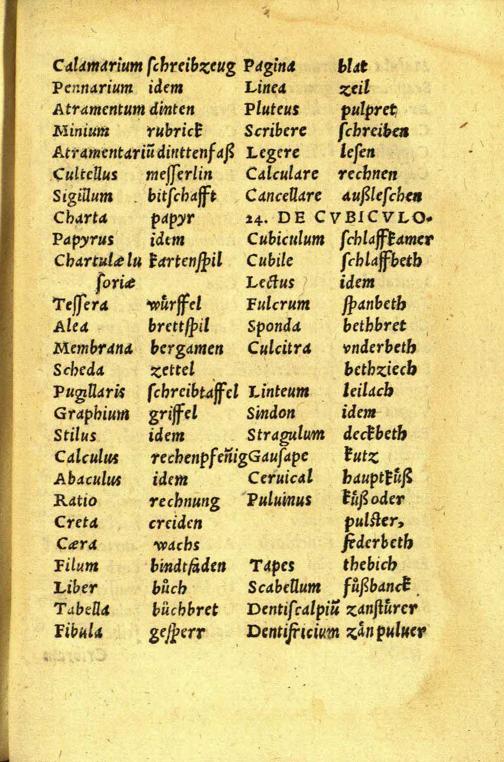 Calamarium ſchreibzeug
Pennarium idem
Atramentum dinten
Minium rubrick
Atramentariū dinttenfaß
Cultellus meſſerlin
Sigillum bitſchafft
Charta papyr
Papyrus idem
Chartulæ lu kartenſpil
ſoriæ
Teſſera wůrffel
Alea brettſpil
Membrana bergamen
Scheda zettel
Pugillaris ſchreibtaffel
Graphium griffel
Stilus idem
Calculus rechenpfeñig
Abaculus idem
Ratio rechnung
Creta creiden
Cæra wachs
Filum bindtfäden
Liber bůch
Tabella bůchbret
Fibula geſperr
Pagina blat
Linea zeil
Pluteus pulpret
Scribere ſchreiben
Legere leſen
Calculare rechnen
Cancellare außleſchen
24. DE CVBICVLO.
Cubiculum ſchlaffkamer
Cubile ſchlaffbeth
Lectus idem
Fulcrum ſpanbeth
Sponda bethbret
Culcitra vnderbeth
bethziech
Linteum leilach
Sindon idem
Stragulum deckbeth
Gauſape kutz
Ceruical hauptkůß
Puluinus kůß oder
pulſter,
federbeth
Tapes thebich
Scabellum fůßbanck
Dentiſcalpiū zanſtůrer
Dentifricium zän puluer